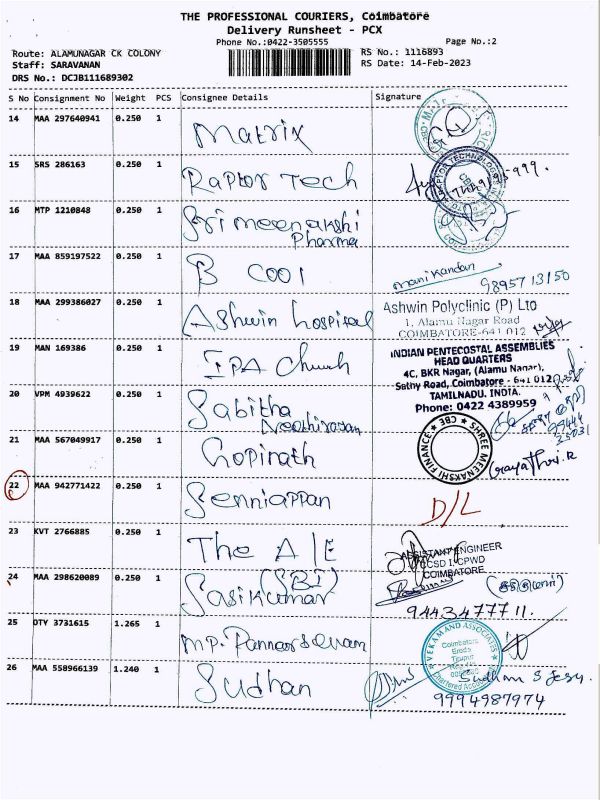 THE PROFESSIONAL COURIERS, Coimbatore
Delivery Runsheet - PCX
Phone No.:0422-3505555 Page No.:2
Route: ALAMUNAGAR CK COLONY RS No.: 1116893
Staff: SARAVANAN RS Date: 14-Feb-2023
DRS No.: DCJB111689302
S No Consignment No Weight PCS Consignee Details Signature
14 MAA 297640941 0.250 1 Matrix
15 SRS 286163 0.250 1 Raptor Tech
16 MTP 1210848 0.250 1 Sri meenakshi
Pharma
17 MAA 859197522 0.250 1 B cool
manikandan
9895713150
18 MAA 299386027 0.250 1 Ashwin hospital
Ashwin Polyclinic (P) Ltd
1, Alamu Nagar Road
COIMBATORE-641 012
19 MAN 169386 0.250 1 IPA Church
INDIAN PENTECOSTAL ASSEMBLIES
HEAD QUARTERS
4C, BKR Nagar, (Alamu Nagar),
Sathy Road, Coimbatore - 641 012
TAMILNADU. INDIA.
Phone: 0422 4389959
20 VPM 4939622 0.250 1 Sabitha
21 MAA 567049917 0.250 1 Gopinath
SHREE MEENAKSHI FINANCE ★ CBE ★
Gayathri.R
22 MAA 942771422 0.250 1 Senniappan D/L
23 KVT 2766885 0.250 1 The A/E
ASSISTANT ENGINEER
CCSD I, CPWD
COIMBATORE
24 MAA 298620089 0.250 1 (SBI)
Sasikumar
9443477711.
25 OTY 3731615 1.265 1 M.P. Pannarselvam
VEKAM AND ASSOCIATES
Coimbatore
Erode
Tirupur
Chartered Accountants
26 MAA 558966139 1.240 1 Sudhan
Sudhan S
9994987974